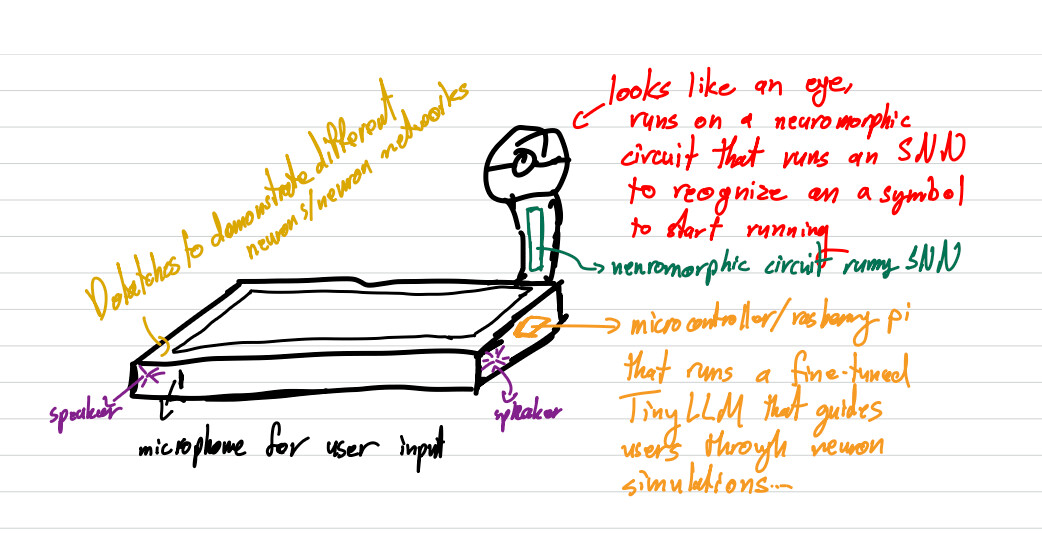 looks like an eye,
runs on a neuromorphic
circuit that runs an SNN
to recognize an a symbol
to start running
Detatches to demonstrate different
neurons/neuron networks
neuromorphic circuit SNN
microcontroller/rasberry pi
that runs a fine-tuned
Tiny LLM that guides
users through neuron
simulations...
speaker
speaker
microphone for user input